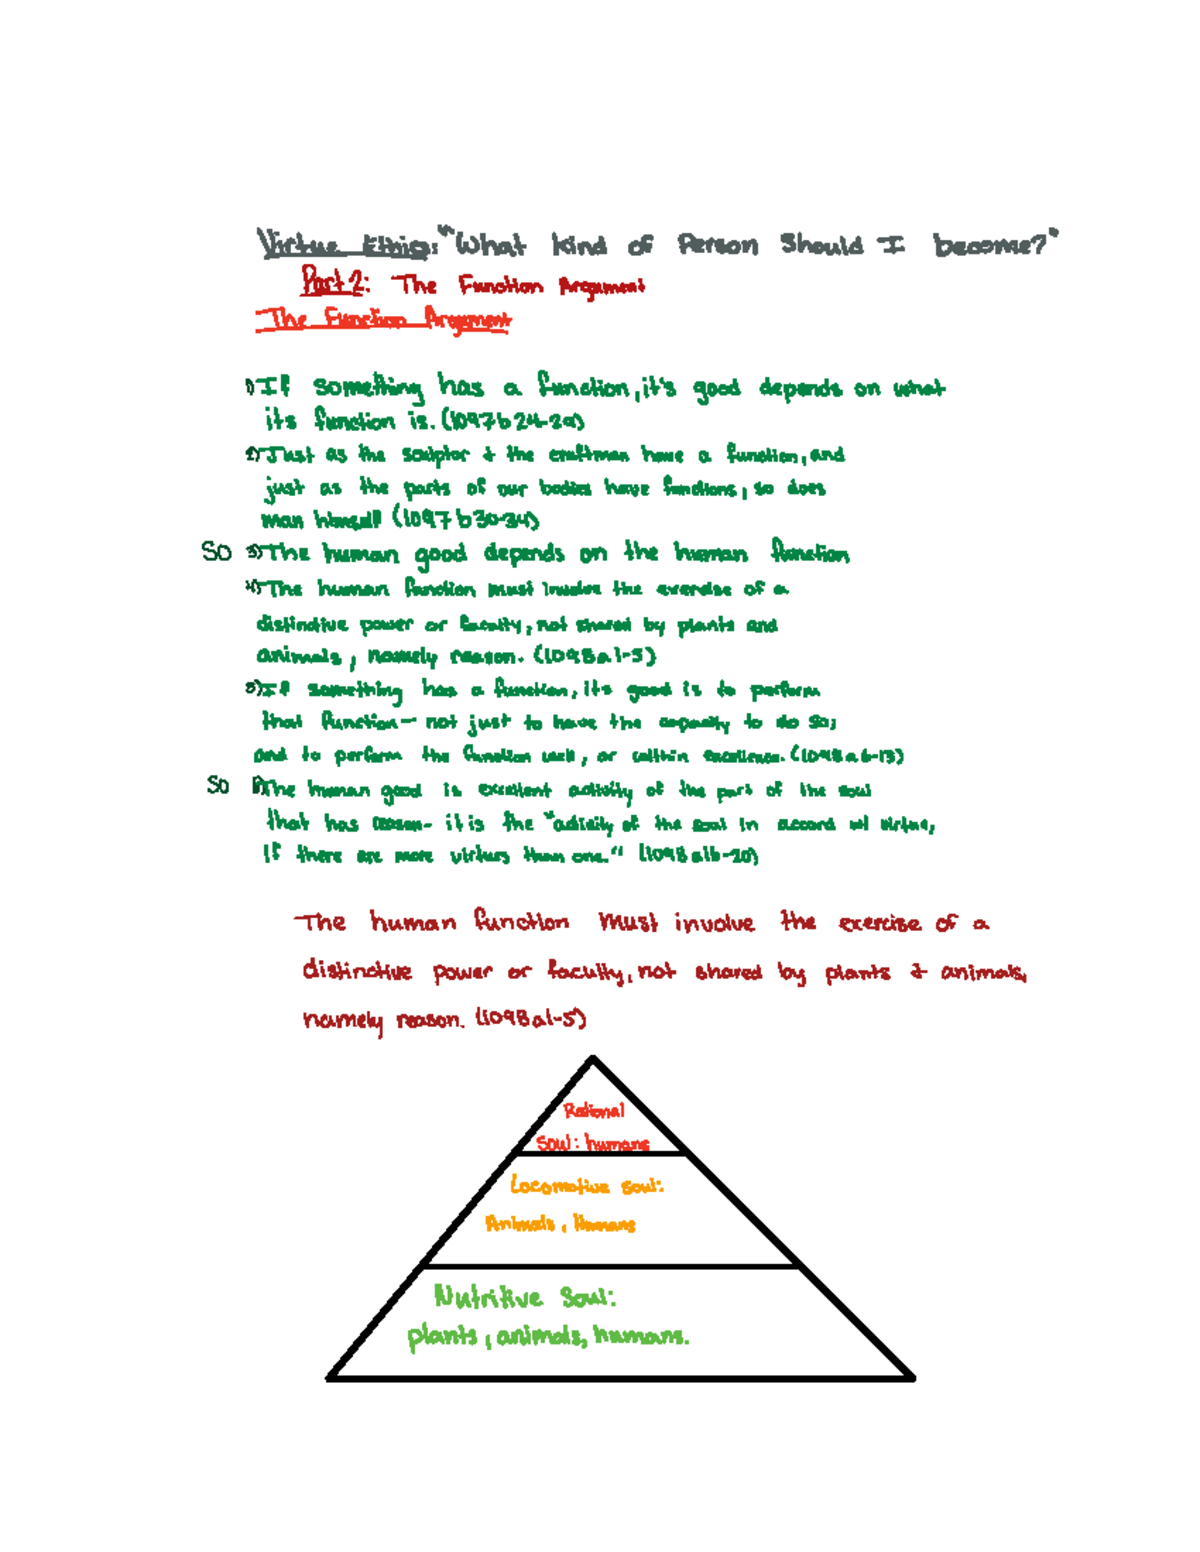 Virtue Ethics: "What kind of Person Should I become?"
Part 2: The Function Argument
The Function Argument
1) If something has a function, it's good depends on what
its function is. (1097b24-29)
2) Just as the sculptor & the craftman have a function, and
just as the parts of our bodies have functions, so does
man himself (1097b30-34)
SO 3) The human good depends on the human function
4) The human function must involve the exercise of a
distinctive power or faculty, not shared by plants and
animals, namely reason. (1098a1-5)
5) If something has a function, its good is to perform
that function- not just to have the capacity to do so;
and to perform the function well, or within excellence. (1098a6-13)
SO The human good is excellent activity of the part of the soul
that has reason- it is the "activity of the soul in accord w/ virtue,
if there are more virtues than one." (1098a16-20)
The human function must involve the exercise of a
distinctive power or faculty, not shared by plants & animals,
namely reason. (1098a1-5)
Rational
Soul: humans
Locomotive soul:
Animals, Humans
Nutritive Soul:
plants, animals, humans.